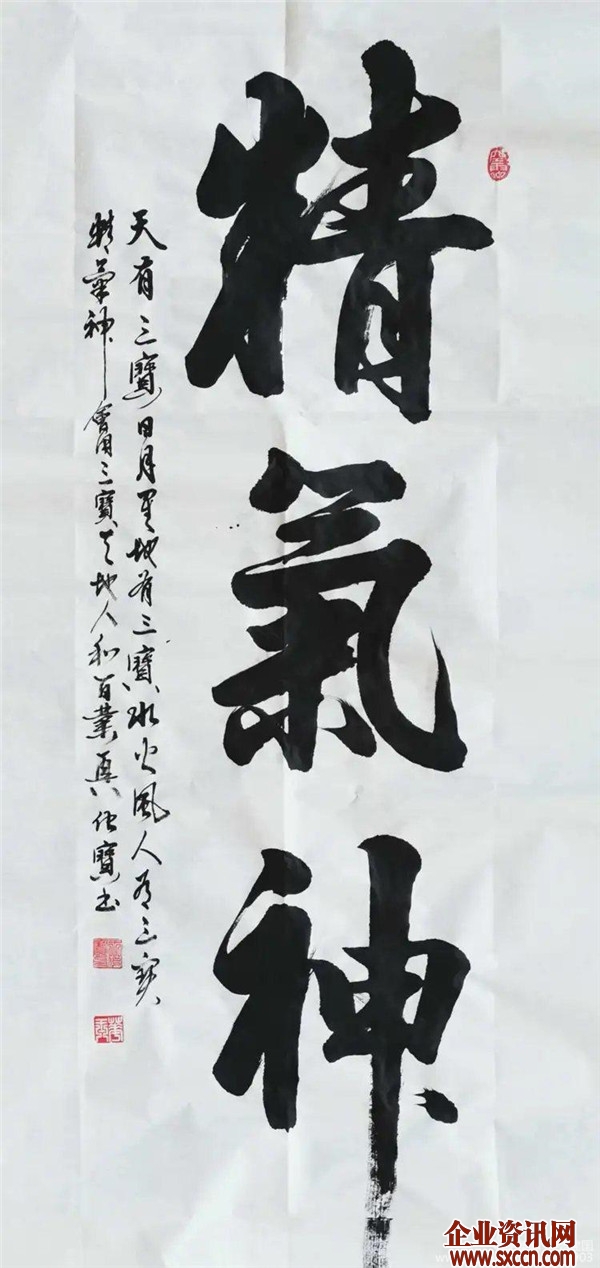 精氣神
天有三寶日月星地有三寶水火風人有三寶
精氣神會用三寶天地人和百業興 寶書
企业资讯网
www.sxccn.com